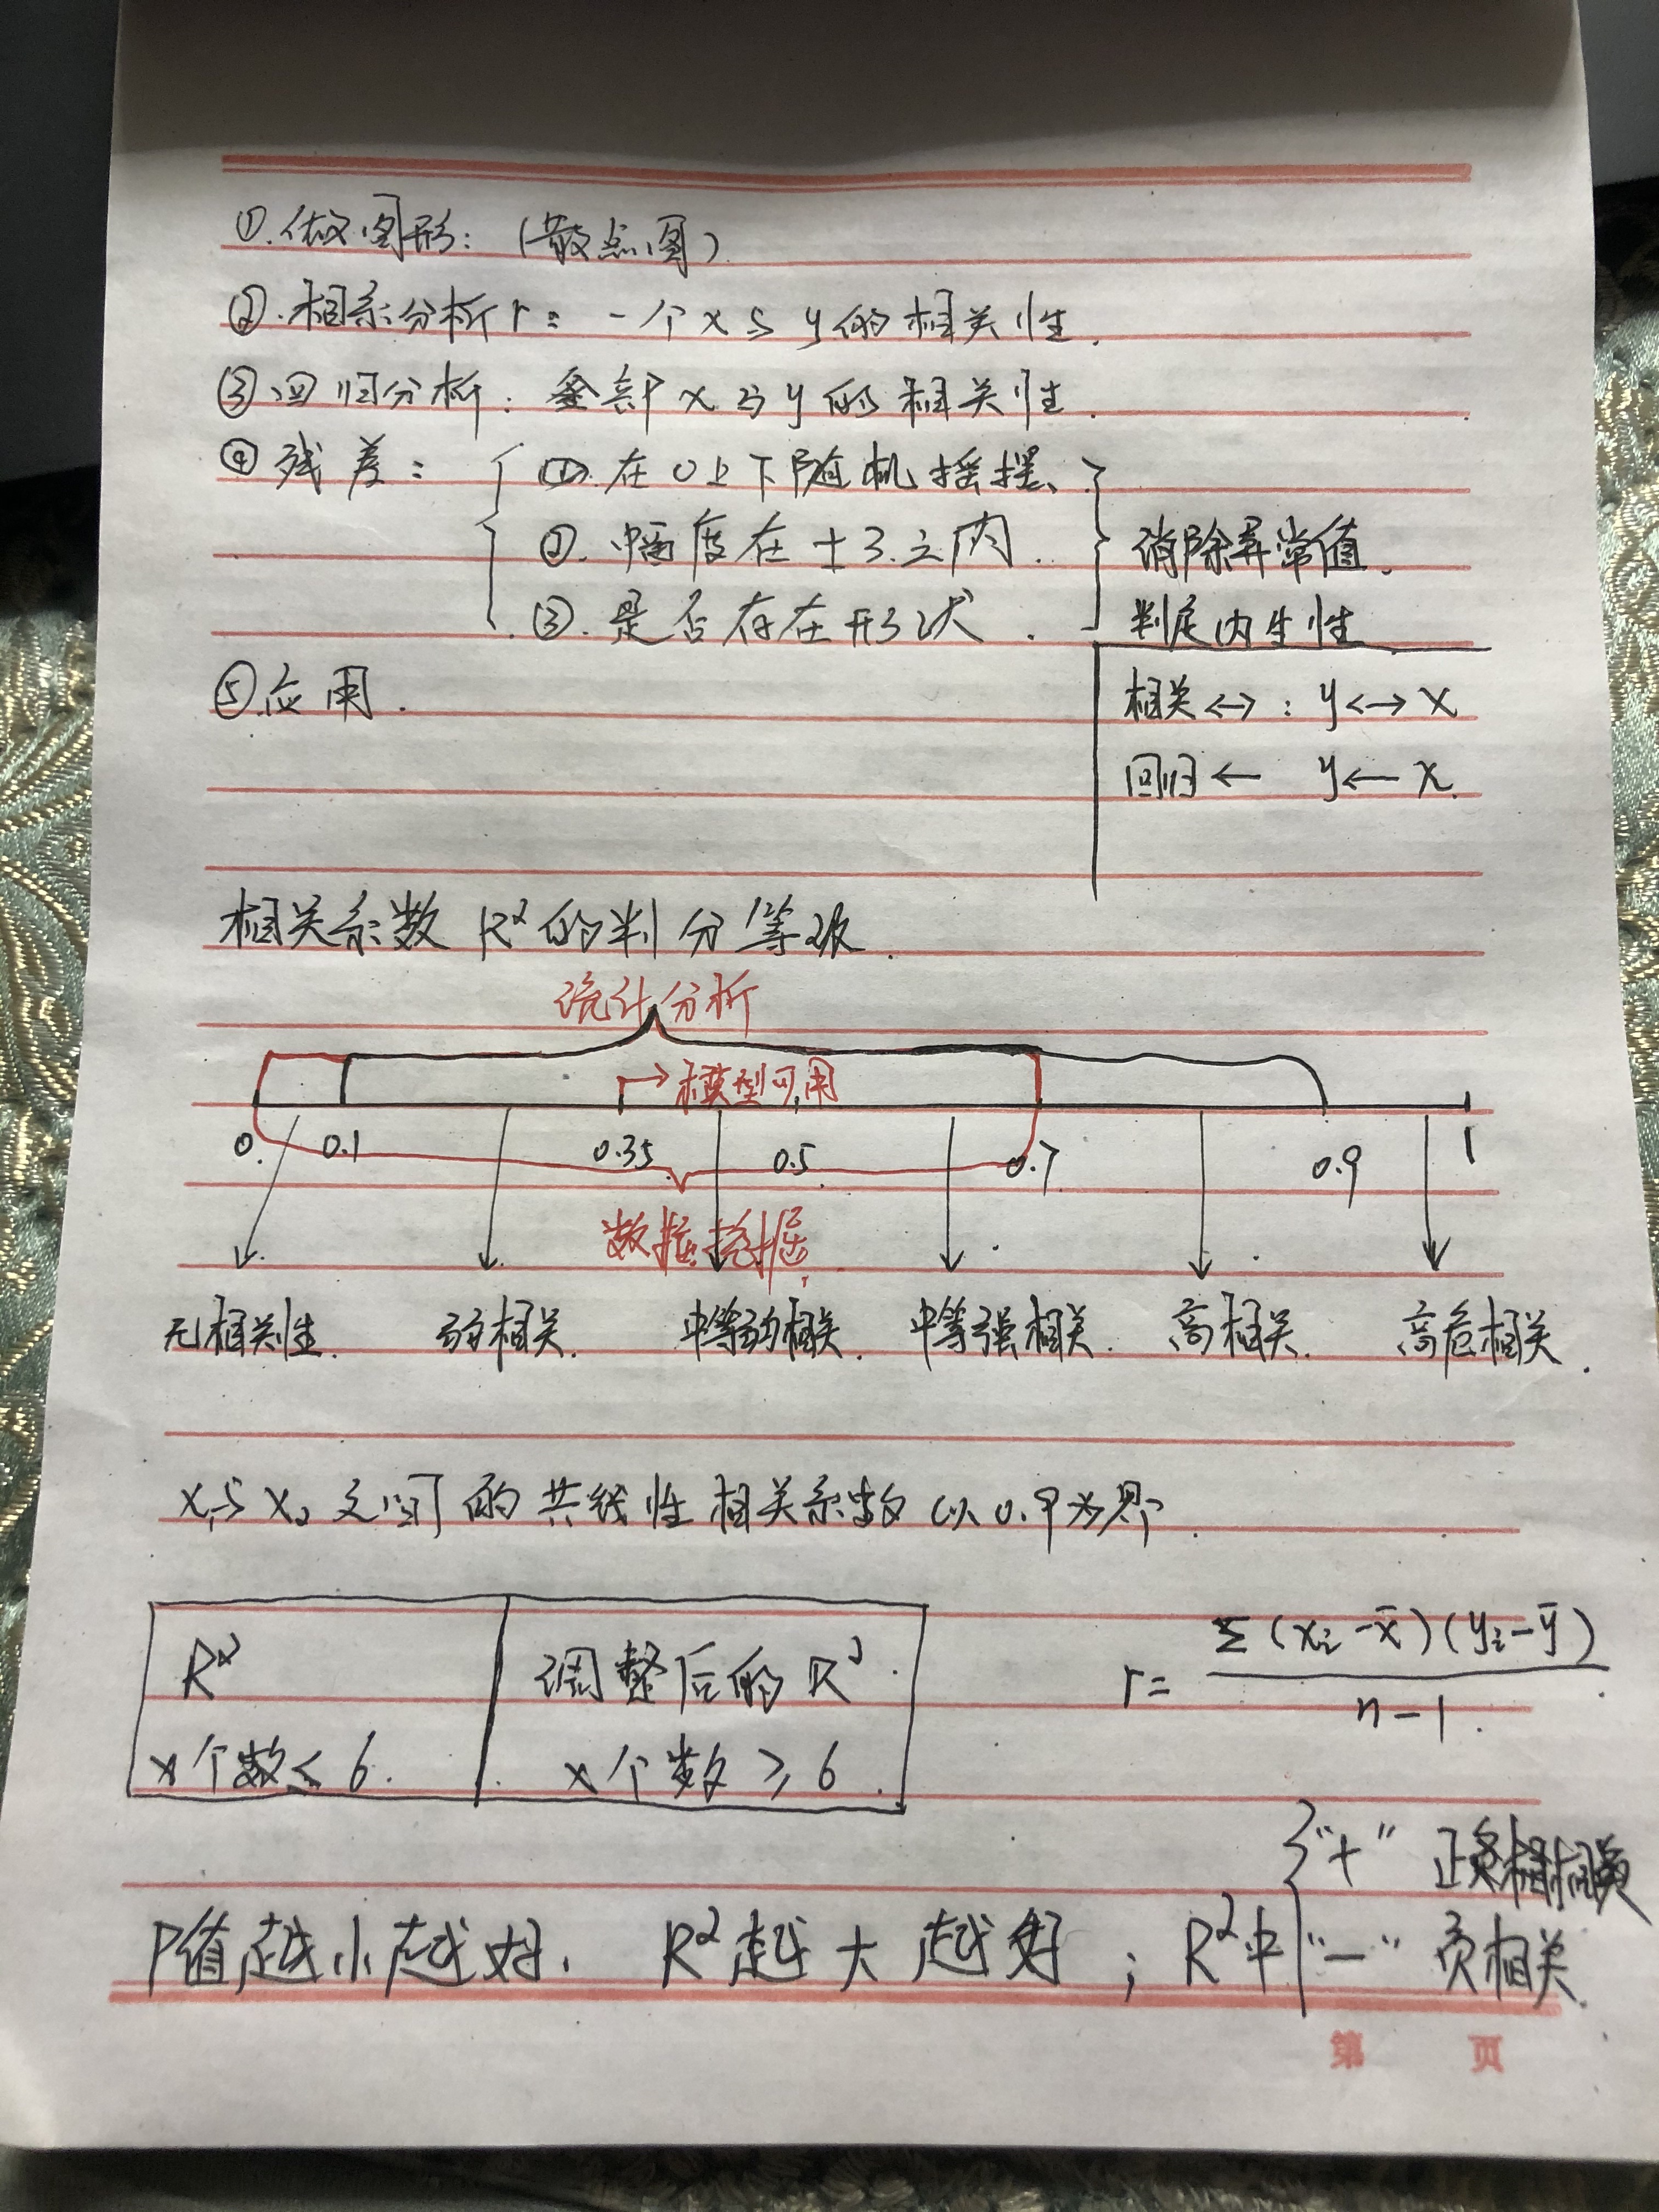 ①.做图形：（散点图）
②.相系分析r：一个x与y的相关性.
③回归分析：全部x与y的相关性.
④残差：
①.在0上下随机摇摆、
②.幅度在±3之内.
③.是否存在形状.
消除异常值.
判定内生性
⑤应用.
相关↔：y↔x
回归← y←x.
相关系数R²的判分等级.
统计分析
→模型可用
0. 0.1 0.35 0.5 0.7 0.9 1
数据挖掘
无相关性. 弱相关. 中等弱相关. 中等强相关. 高相关. 高危相关.
x₁与x₂之间的共线性相关系数以0.9为界.
R² 调整后的R².
x个数<6. x个数≥6.
r= Σ(xi-x̄)(yi-ȳ) / n-1.
P值越小越好. R²越大越好；R²中
“+” 正相关
“—” 负相关.
第 页